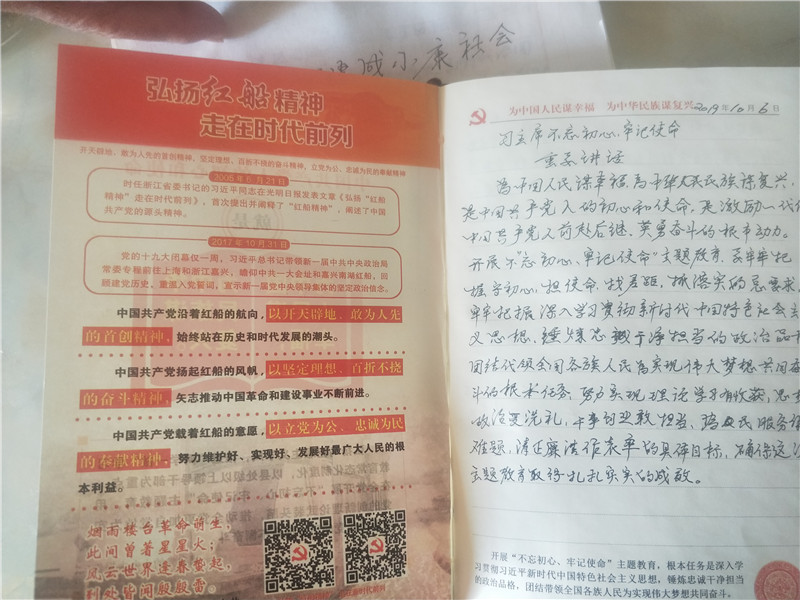 建成小康社会
弘扬红船精神
走在时代前列
开天辟地、敢为人先的首创精神，坚定理想、百折不挠的奋斗精神，立党为公、忠诚为民的奉献精神
2005年6月21日
时任浙江省委书记的习近平同志在光明日报发表文章《弘扬“红船
精神” 走在时代前列》，首次提出并阐释了“红船精神”，阐述了中国
共产党的源头精神。
2017年10月31日
党的十九大闭幕仅一周，习近平总书记带领新一届中共中央政治局
常委专程前往上海和浙江嘉兴，瞻仰中共一大会址和嘉兴南湖红船，回
顾建党历史，重温入党誓词，宣示新一届党中央领导集体的坚定政治信念。
中国共产党沿着红船的航向，以开天辟地、敢为人先
的首创精神，始终站在历史和时代发展的潮头。
中国共产党扬起红船的风帆，以坚定理想、百折不挠
的奋斗精神，矢志推动中国革命和建设事业不断前进。
中国共产党载着红船的意愿，以立党为公、忠诚为民
的奉献精神，努力维护好、实现好、发展好最广大人民的根
本利益。
烟雨楼台革命萌生，
此间曾著星星火；
风云世界逢春蛰起，
到处皆闻殷殷雷。
为中国人民谋幸福 为中华民族谋复兴 2019年10月6日
习主席不忘初心、牢记使命
重要讲话
为中国人民谋幸福，为中华人民民族谋复兴，
是中国共产党人的初心和使命，是激励一代
中国共产党人前赴后继、英勇奋斗的根本动力。
开展不忘初心、牢记使命”主题教育，要牢牢把
握守初心，担使命，找差距，抓落实的总要求，
牢牢把握深入学习贯彻新时代中国特色社会主
义思想，锤炼忠诚干净担当的政治品
团结代领全国各族人民为实现伟大梦想共同奋
斗的根本任务。努力实现理论学习有收获，思
政治受洗礼，干事创业敢担当，为民服务
难题，清正廉洁作表率的具体目标，确保这次
主题教育取得扎扎实实的成效。
开展“不忘初心、牢记使命”主题教育，根本任务是深入学
习贯彻习近平新时代中国特色社会主义思想，锤炼忠诚干净担当
的政治品格，团结带领全国各族人民为实现伟大梦想共同奋斗。